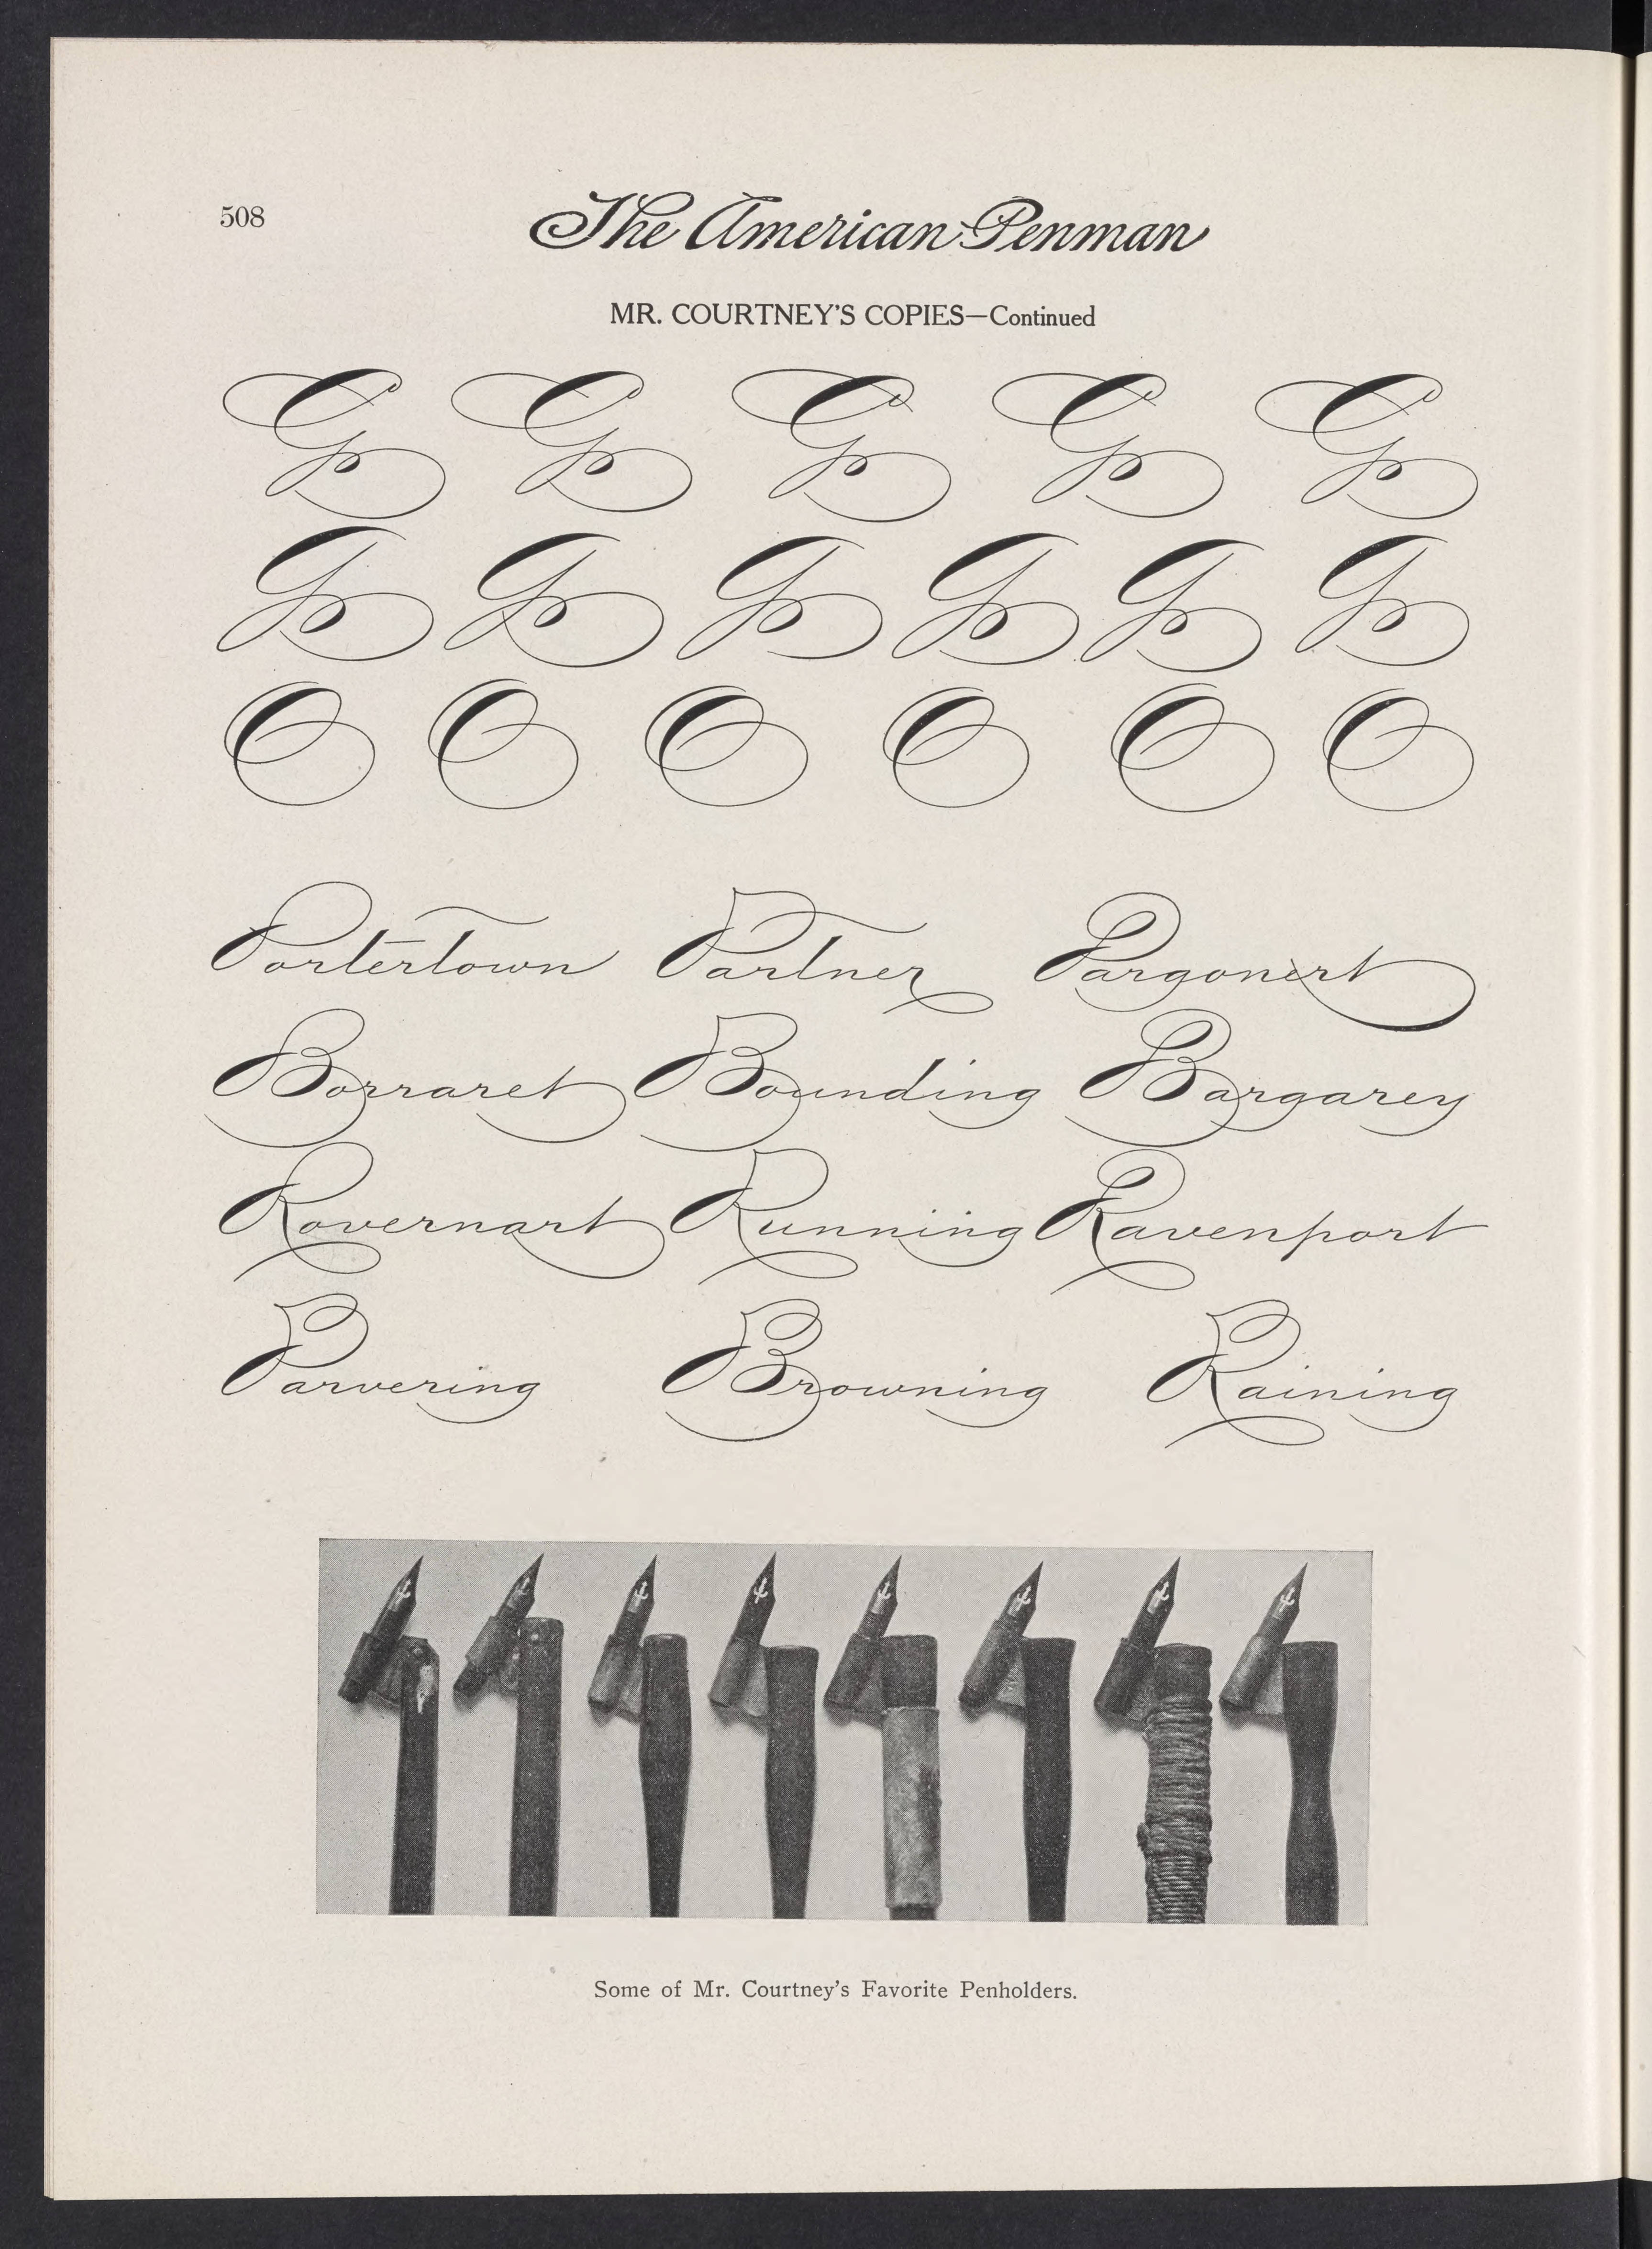 508
The American Penman
MR. COURTNEY'S COPIES—Continued
G G G G G
G G G G G G
O O O O O O
Portertown Partner Pargonert
Borraret Bounding Bargarey
Rovernart Running Ravenport
Parvering Browning Raining
Some of Mr. Courtney's Favorite Penholders.